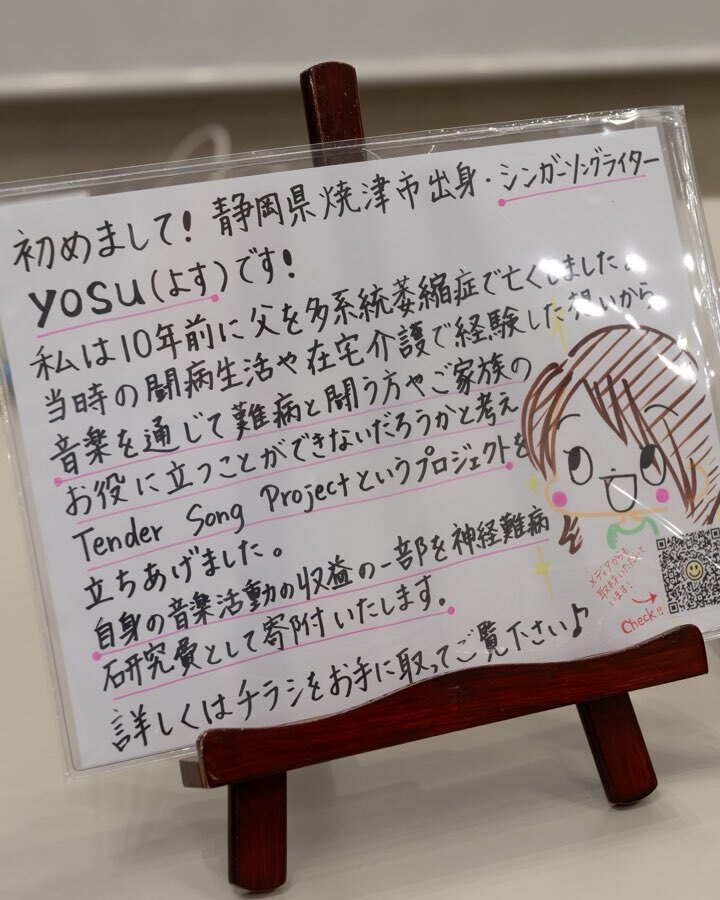 初めまして! 静岡県焼津市出身・シンガーソングライター
yosu(よす)です!
私は10年前に父を多系統萎縮症で亡くしました。
当時の闘病生活や在宅介護で経験した想いから
音楽を通じて難病と闘う方やご家族の
お役に立つことができないだろうかと考え
Tender Song Projectというプロジェクトを
立ちあげました。
自身の音楽活動の収益の一部を神経難病
研究費として寄附いたします。
詳しくはチラシをお手に取ってご覧下さい♪
メディアからも
取材いただいて
います!
Check!!